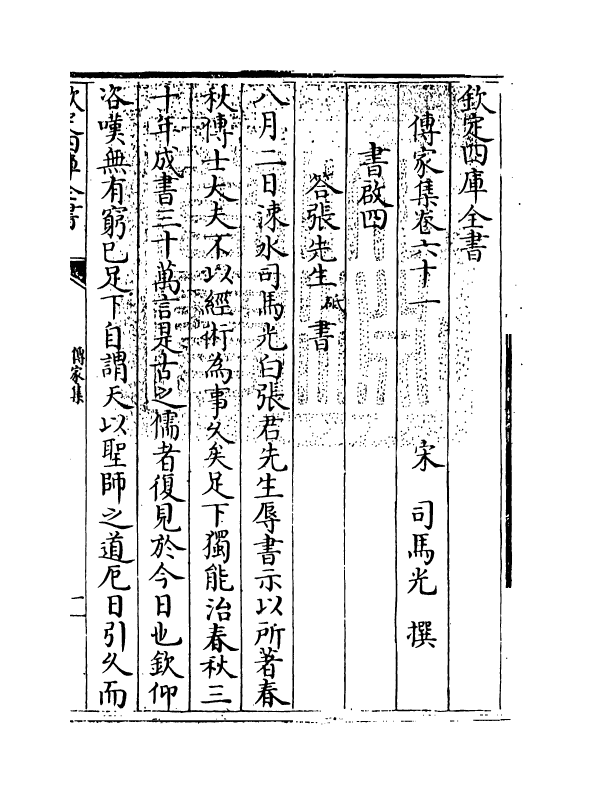 欽定四庫全書
傳家集卷六十一
宋 司馬光 撰
書啟四
答張先生砥書
八月二日涑水司馬光白張君先生辱書示以所著春
秋傳士大夫不以經術為事久矣足下獨能治春秋三
十年成書三十萬言是古之儒者復見於今日也欽仰
咨嘆無有窮已足下自謂天以聖師之道厄日引久而
欽定四庫全書
傳家集
一